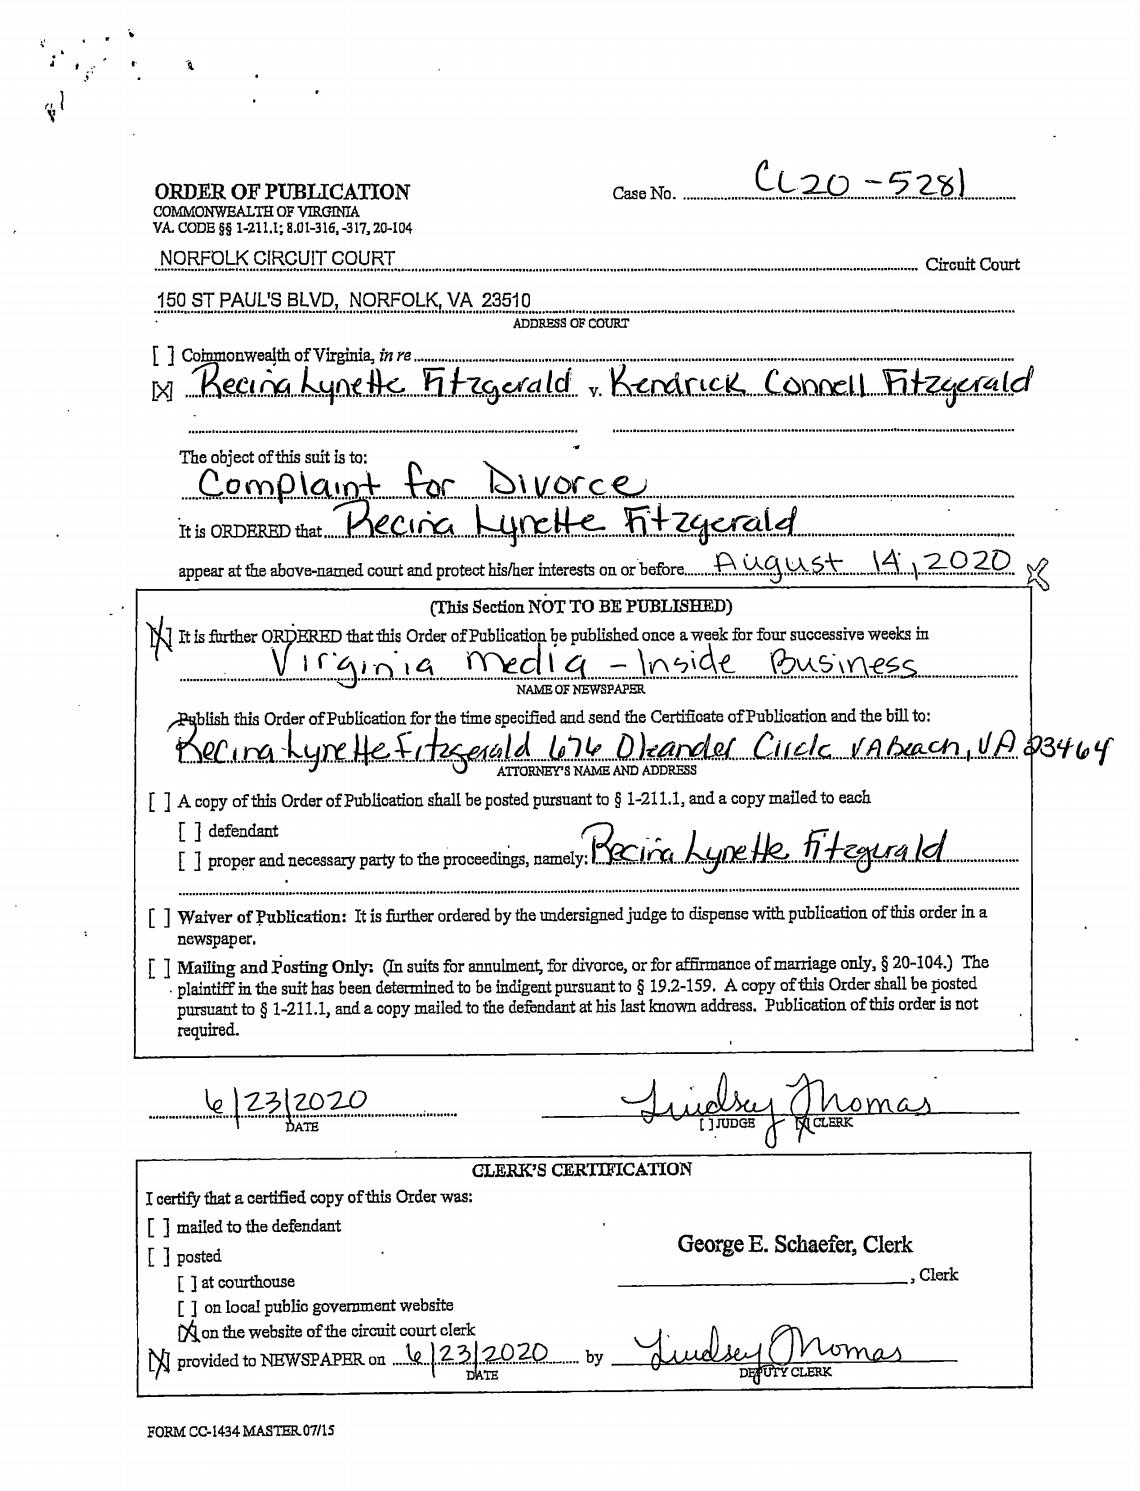 ORDER OF PUBLICATION
Case No. CL20-5281
COMMONWEALTH OF VIRGINIA
VA. CODE §§ 1-211.1; 8.01-316, -317, 20-104
NORFOLK CIRCUIT COURT Circuit Court
150 ST PAUL'S BLVD, NORFOLK, VA 23510
ADDRESS OF COURT
[ ] Commonwealth of Virginia, in re
[X] Recina Lynette Fitzgerald v. Kendrick Connell Fitzgerald
The object of this suit is to:
Complaint for Divorce
It is ORDERED that Recina Lynette Fitzgerald
appear at the above-named court and protect his/her interests on or before August 14, 2020
(This Section NOT TO BE PUBLISHED)
[X] It is further ORDERED that this Order of Publication be published once a week for four successive weeks in
Virginia Media - Inside Business
NAME OF NEWSPAPER
Publish this Order of Publication for the time specified and send the Certificate of Publication and the bill to:
Recina Lynette Fitzgerald 676 Oleander Circle VA Beach, VA 23464
ATTORNEY'S NAME AND ADDRESS
[ ] A copy of this Order of Publication shall be posted pursuant to § 1-211.1, and a copy mailed to each
[ ] defendant
[ ] proper and necessary party to the proceedings, namely: Recina Lynette Fitzgerald
[ ] Waiver of Publication: It is further ordered by the undersigned judge to dispense with publication of this order in a
newspaper.
[ ] Mailing and Posting Only: (In suits for annulment, for divorce, or for affirmance of marriage only, § 20-104.) The
plaintiff in the suit has been determined to be indigent pursuant to § 19.2-159. A copy of this Order shall be posted
pursuant to § 1-211.1, and a copy mailed to the defendant at his last known address. Publication of this order is not
required.
6/23/2020 Lindsey Thomas
DATE [ ] JUDGE [X] CLERK
CLERK'S CERTIFICATION
I certify that a certified copy of this Order was:
[ ] mailed to the defendant
[ ] posted
George E. Schaefer, Clerk
[ ] at courthouse
, Clerk
[ ] on local public government website
[X] on the website of the circuit court clerk
[X] provided to NEWSPAPER on 6/23/2020 by Lindsey Thomas
DATE DEPUTY CLERK
FORM CC-1434 MASTER 07/15